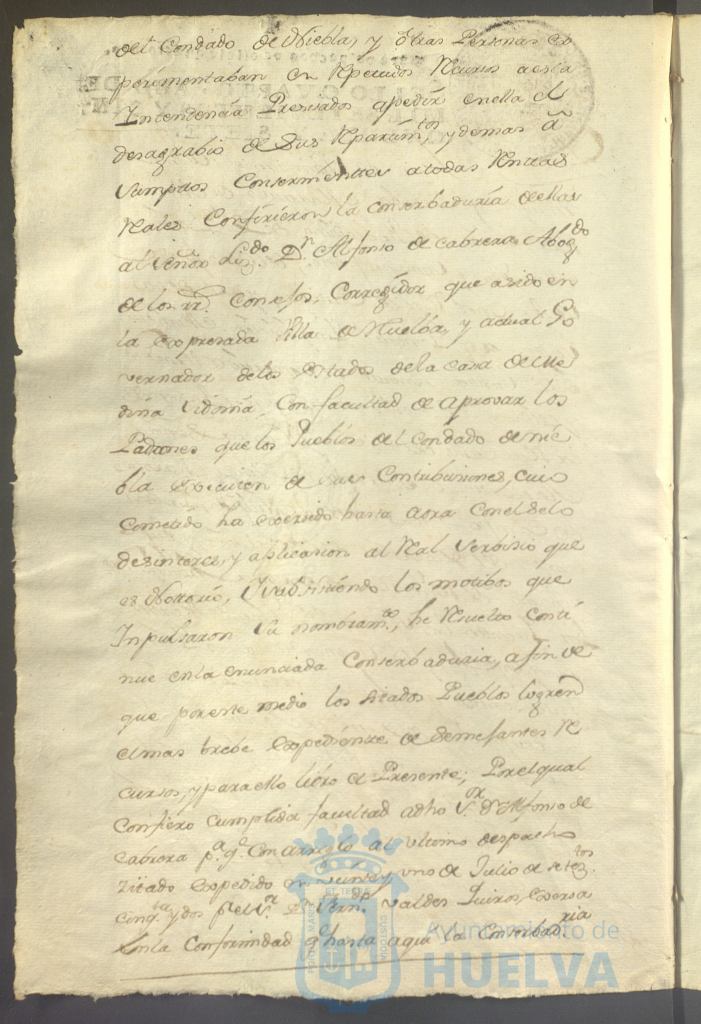 del Condado de Niebla, y otras Personas ex
perimentaban en repetidos Recursos a esta
Intendencia Precisados a pedir en ella el
desagrabio de sus Repartim.tos, y demas a
sumptos Conserni[entes] a todas Rentas
Reales Confirieron la conserbaduria de ellas
al señor Liz.do D.n Alfonso de Cabrera Abog.do
de los rr.s Consejos, Corregidor que a sido en
la expresada Villa de Huelba, y actual Go
vernador delos estados dela casa de Me
dina Sidonia, Con facultad de aprovar los
Padrones que los Pueblos del Condado de nie
bla executen de sus Contribusiones, cuio
Cometido ha exersido hasta aora Con el selo
desinteres, y aplicasion al Real Servisio que
es Notorio, Y subsistiendo los motibos que
Inpulsaron su nombram.to, he Resuelto conti
nue en la enunciada Conserbaduria, a fin de
que por este medio los sitados Pueblos logren
el mas brebe expediente de semejantes Re
cursos, y para ello libro el Presente; Por el qual
Confiero cumplida facultad a dho S.or D.n Alfonso de
Cabrera p.a q.e Con arreglo al ultimo despacho
zitado expedido en veinte y uno de Julio de setez.tos
cinq.ta y dos p.r el S.or D.n Fern.do Valdes Quiros, exersa
en la Conformidad q.e hasta aqui la Conserbad.ria
Ayuntamiento de
HUELVA